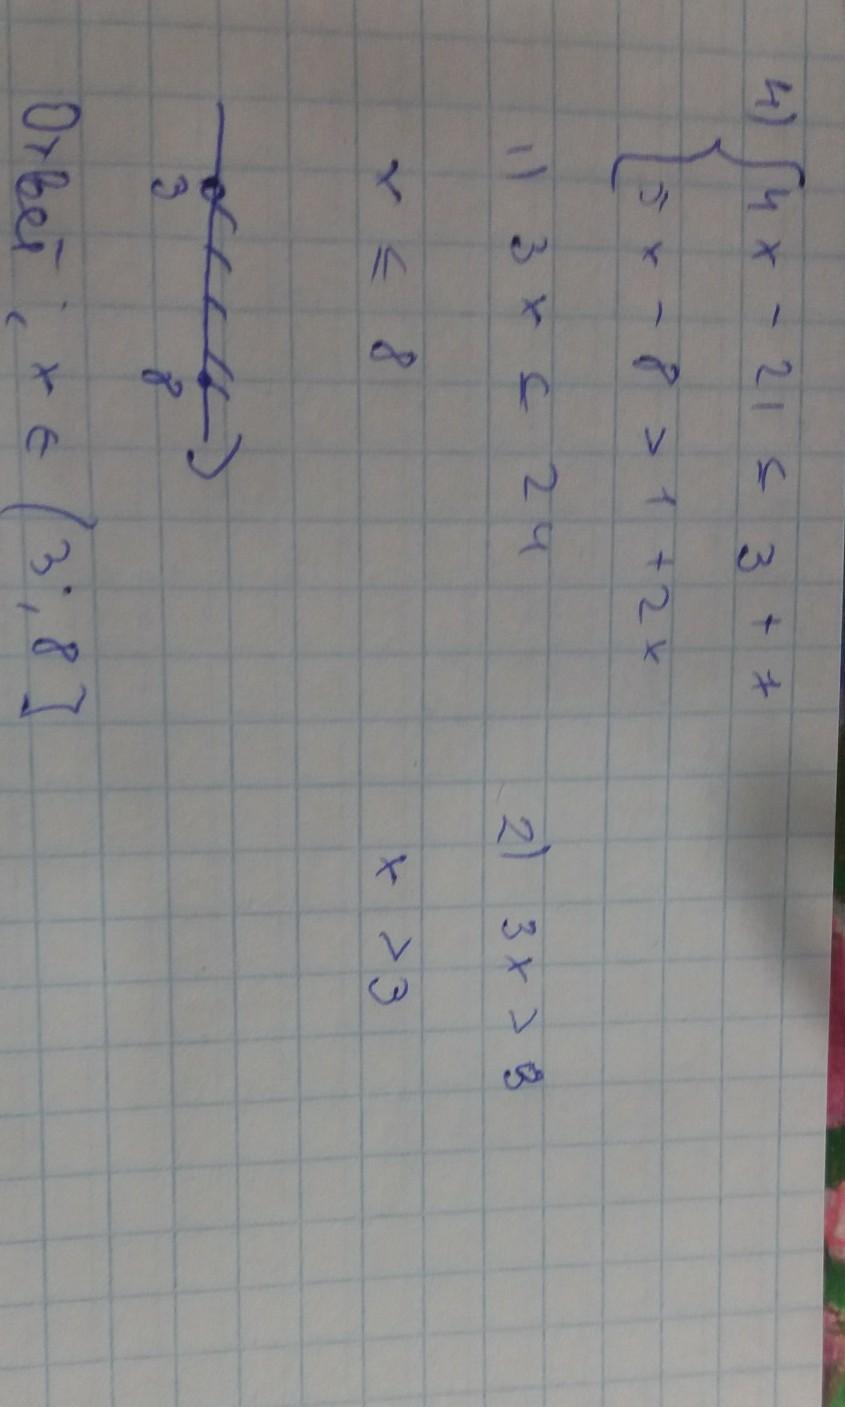 4) { 4x - 21 ≤ 3 + x
5x - 8 > 1 + 2x
1) 3x ≤ 24 2) 3x > 9
x ≤ 8 x > 3
3 8
Ответ: x ∈ (3; 8]